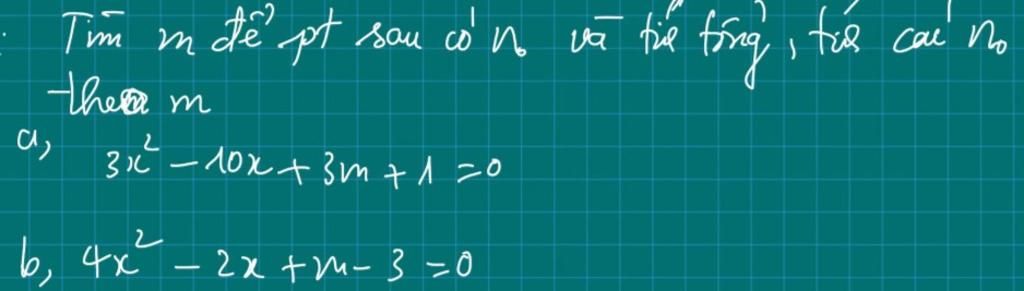 Tìm m để pt sau có n₀ và tổng, các n₀
theo m
a, 3x² - 10x + 3m + 1 = 0
b, 4x² - 2x + m - 3 = 0